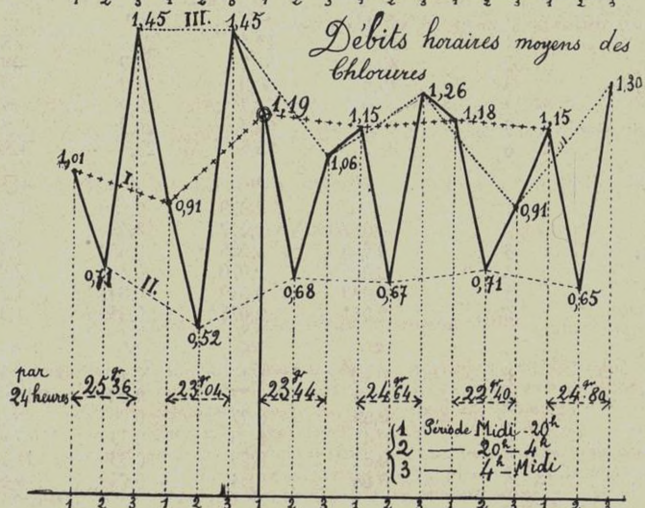 1 2 3 1 2 3 1 2 3 1 2 3 1 2 3 1 2 3
1,45 III. 1,45
Débits horaires moyens des
Chlorures
1,19 1,15 1,26 1,18 1,15 1,30
1,01 I. 0,91 1,06 0,91
0,71 II. 0,68 0,67 0,71 0,65
0,52
par
24 heures 25gr36 23gr04 23gr44 24gr64 22gr40 24gr80
1 Période Midi - 20h
2 — 20h - 4h
3 — 4h - Midi
1 2 3 1 2 3 1 2 3 1 2 3 1 2 3 1 2 3